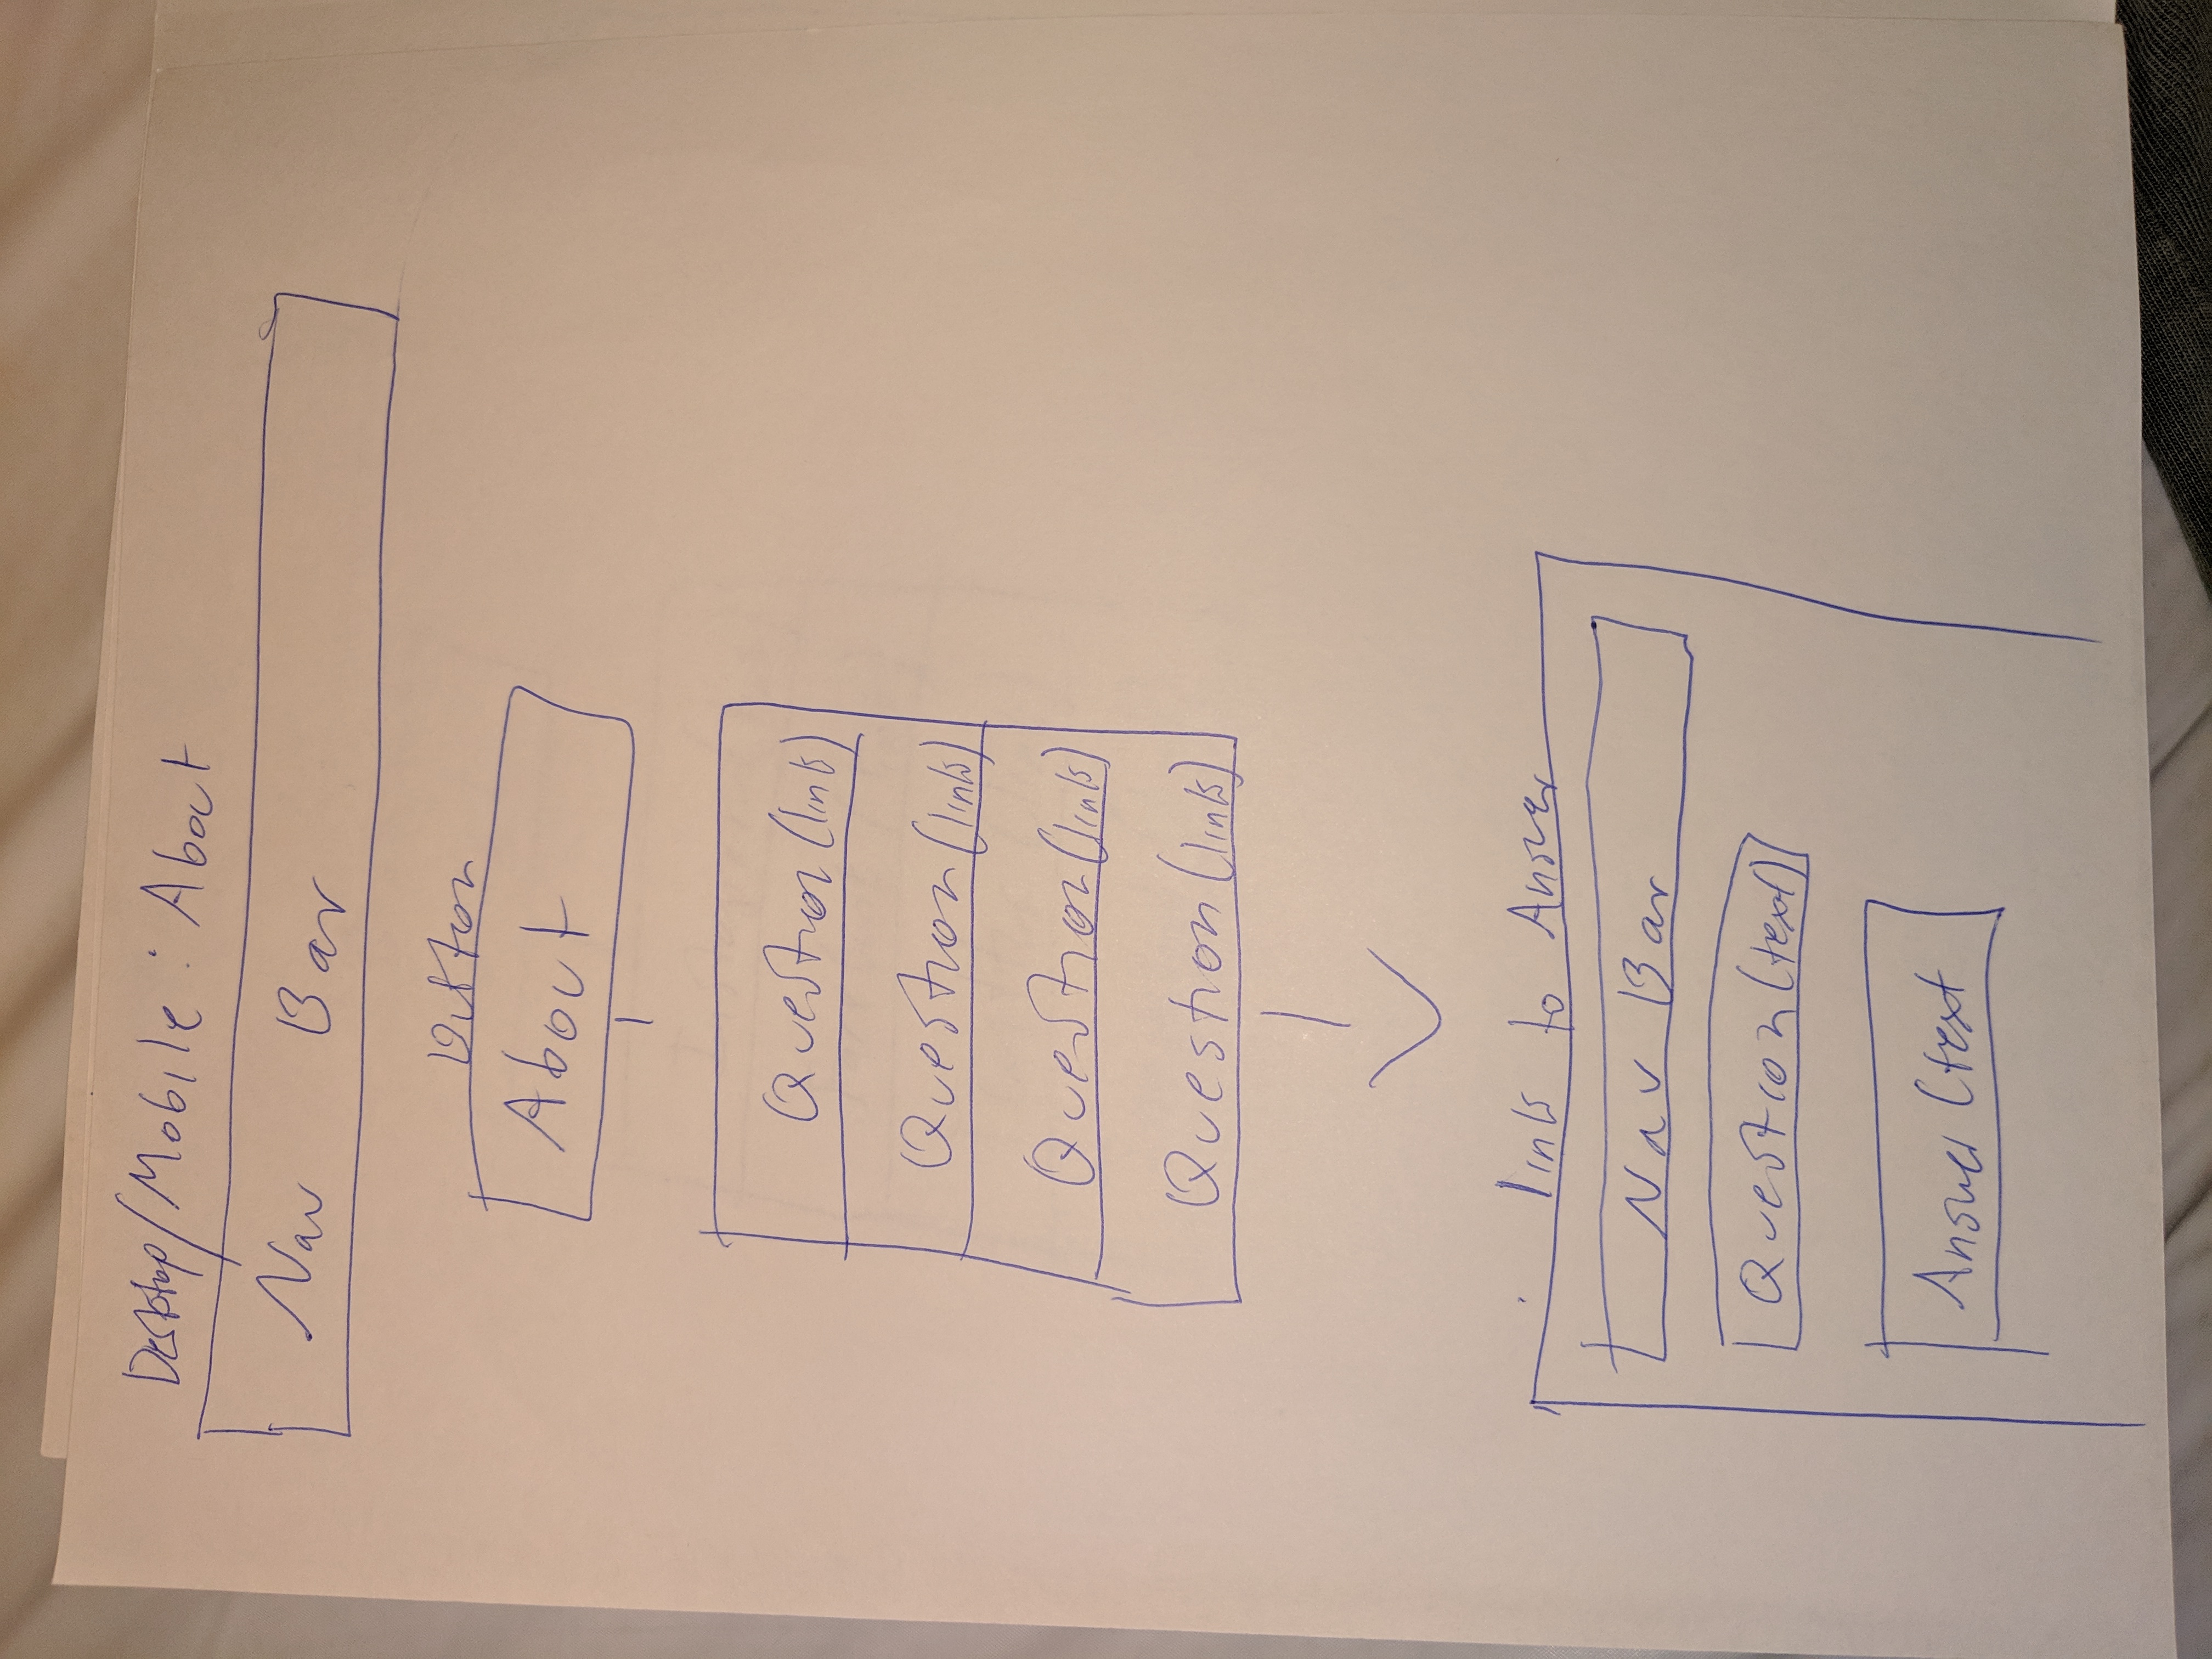 Desktop/Mobile: About
Nav Bar
Button
About
Question (link)
Question (links)
Question (links)
Question (links)
links to Answer
Nav Bar
Question (text)
Answer (text